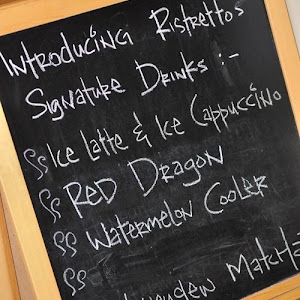 Introducing Ristrettos
Signature Drinks :-
Ice Latte & Ice Cappuccino
Red Dragon
Watermelon Cooler
Matcha